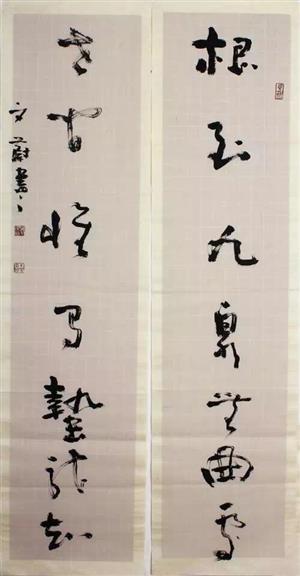 根到九泉無曲處
世間惟有蟄龍知
文蔚書